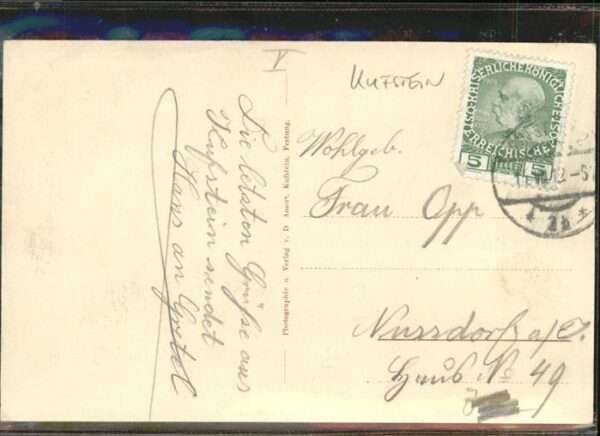 V
KUFSTEIN
Die letzten Grüße aus
Kufstein sendet
Hans an Gretel
Photographie u. Verlag v. D Anert, Kufstein, Festung.
KAISERLICHEKÖNIGLICHE
ÖSTERREICHISCHE POST
5 5
2b
Wohlgeb.
Frau Opp
Nussdorf a/I.
Haus No 49